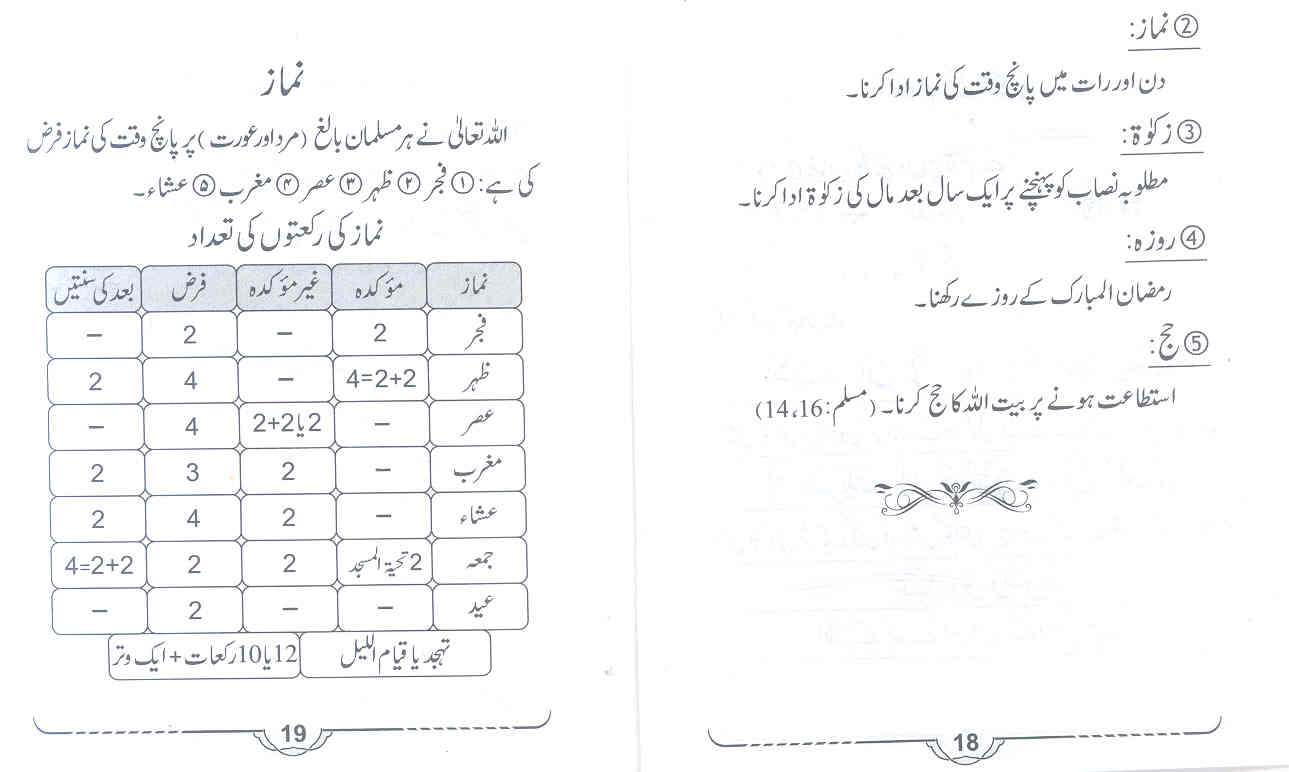 ② نماز:
دن اور رات میں پانچ وقت کی نماز ادا کرنا۔
③ زکوٰۃ:
مطلوبہ نصاب کو پہنچنے پر ایک سال بعد مال کی زکوٰۃ ادا کرنا۔
④ روزہ:
رمضان المبارک کے روزے رکھنا۔
⑤ حج:
استطاعت ہونے پر بیت اللہ کا حج کرنا۔ (مسلم: 14،16)
18
نماز
اللہ تعالیٰ نے ہر مسلمان بالغ (مرد اور عورت) پر پانچ وقت کی نماز فرض
کی ہے: ① فجر ② ظہر ③ عصر ④ مغرب ⑤ عشاء۔
نماز کی رکعتوں کی تعداد
نماز مؤکدہ غیر مؤکدہ فرض بعد کی سنتیں
فجر 2 – 2 –
ظہر 2+2=4 – 4 2
عصر – 2 یا 2+2 4 –
مغرب – 2 3 2
عشاء – 2 4 2
جمعہ 2 تحیۃ المسجد 2 2 2+2=4
عید – – 2 –
تہجد یا قیام اللیل 12 یا 10 رکعات + ایک وتر
19